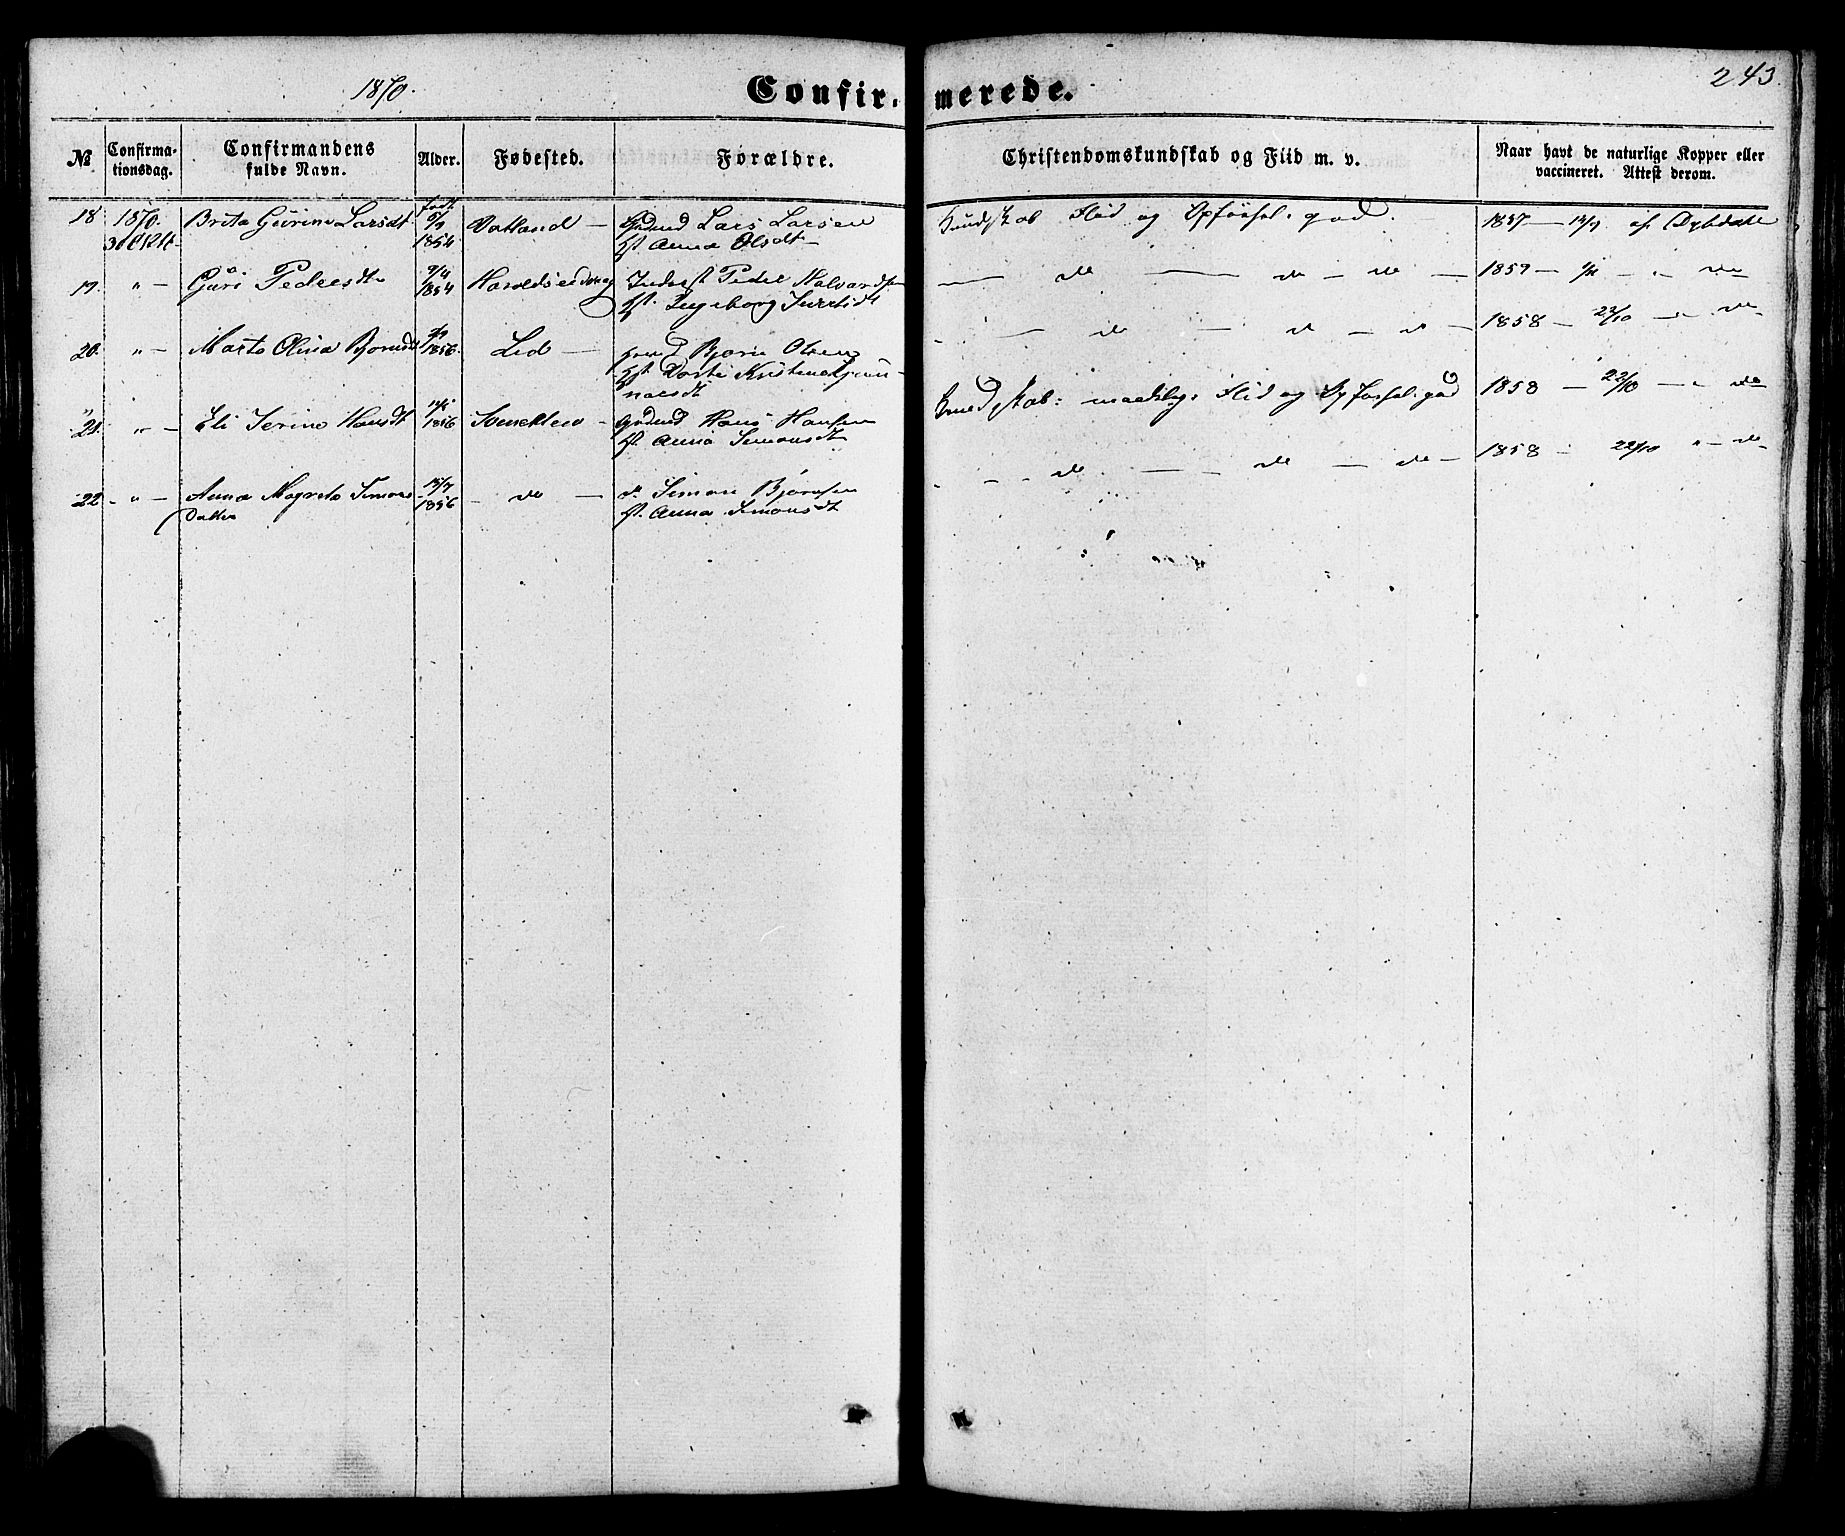 1870.
Confirmerede.
243.
No
Confirmationsdag.
Confirmandens fulde Navn.
Alder.
Fødested.
Forældre.
Christendomskundskab og Flid m. v.
Naar havt de naturlige Kopper eller vaccineret. Attest derom.
18 1870. Brita Gurine Larsdt født 1854 Vatland — Gdmd Lars Larsen
Hst. Anna Olsdt —
Kundskab Flid og Opførsel: god. 1857 — af Dybdahl
19. " — Guri Pedersdt 9/4 1854 Inderst Peder Halvardsen
Hst. Ingeborg
— do — do — do — 1857 — " — do —
20. " — Marta Olina Bjornsdt 1856. Lid — Bjorn Olsen
Hst. Dorte Kristine Gunnarsdt
— do — do — do — 1858 — 22/10 — " — do —
21. " — Eli Serine Hansdt 1856 — Gdmd Hans Hansen
Hst. Anna Simonsdt
Kundskab: maadelig: Flid og Opførsel: god 1858 — 22/10 — " — do
22 - " — Anna Magreta Simons 15/7 1856 — do — do Simon Bjørnsen
Datter
Hst. Anna Simonsdt
— do — do — do — 1858 — 22/10 " — do —